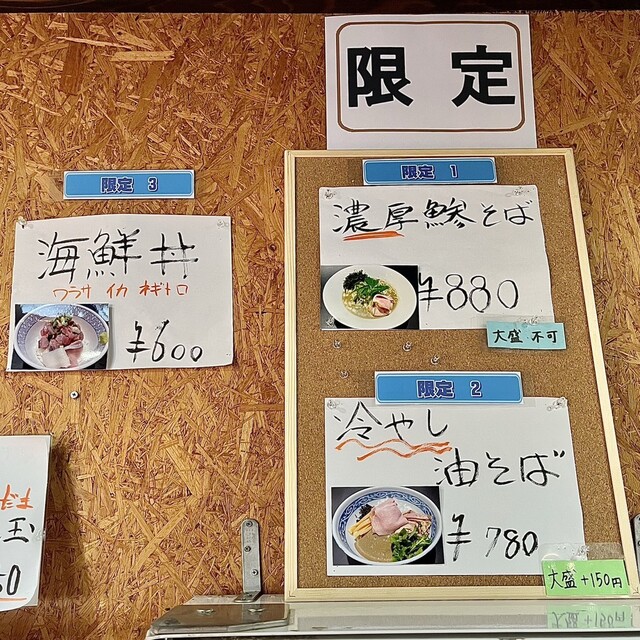 限定
限定 1
濃厚鯵そば
¥880
大盛 不可
限定 2
冷やし
油そば
¥780
大盛+150円
限定 3
海鮮丼
ワラサ イカ ネギトロ
¥600
だま
玉
50